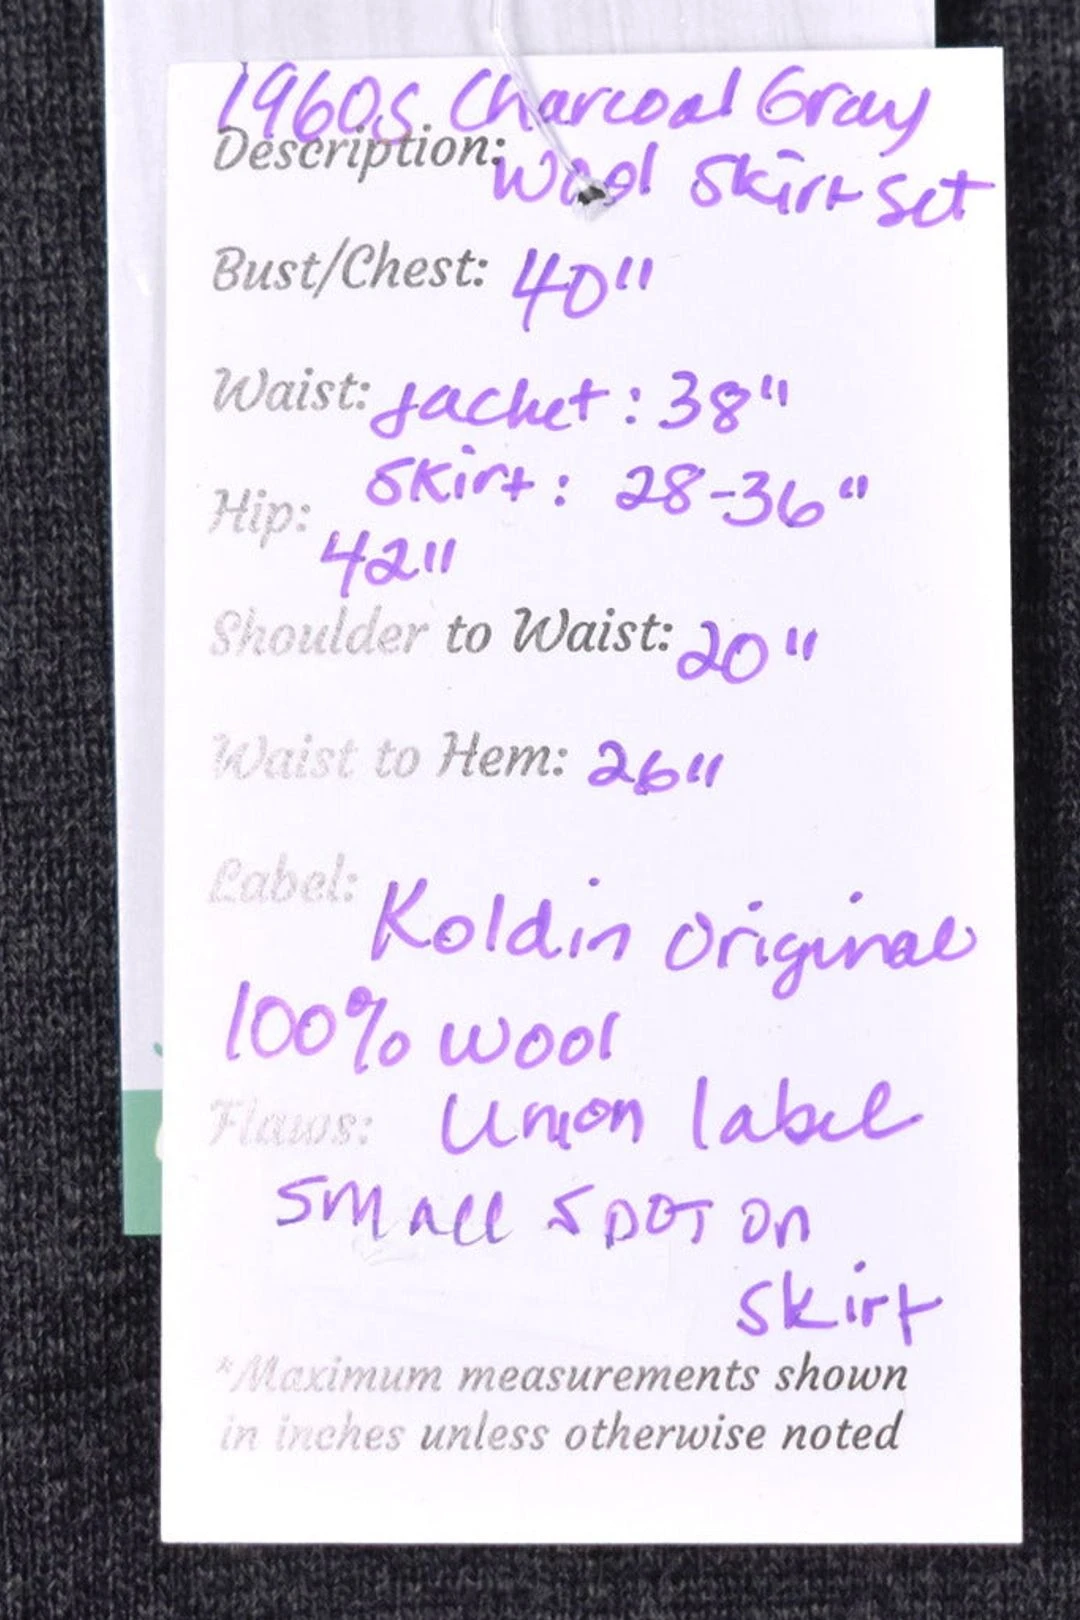 1960s Charcoal Gray
Description: Wool Skirt Set
Bust/Chest: 40"
Waist: Jacket: 38"
Skirt: 28-36"
Hip: 42"
Shoulder to Waist: 20"
Waist to Hem: 26"
Label: Koldin Original
100% wool
Union label
Flaws: Small spot on
skirt
*Maximum measurements shown
in inches unless otherwise noted